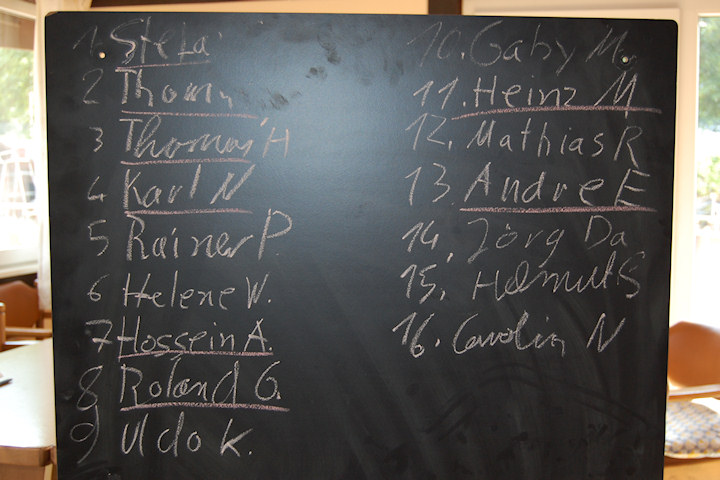 1. Stefa
2 Thomy
3 Thomas H
4 Karl N
5 Rainer P.
6 Helene W.
7 Hossein A.
8 Roland G.
9 Udo K.
10. Gaby M.
11. Heinz M
12. Mathias R
13. Andre E
14. Jörg Da
15. Helmut S
16. Carolin N